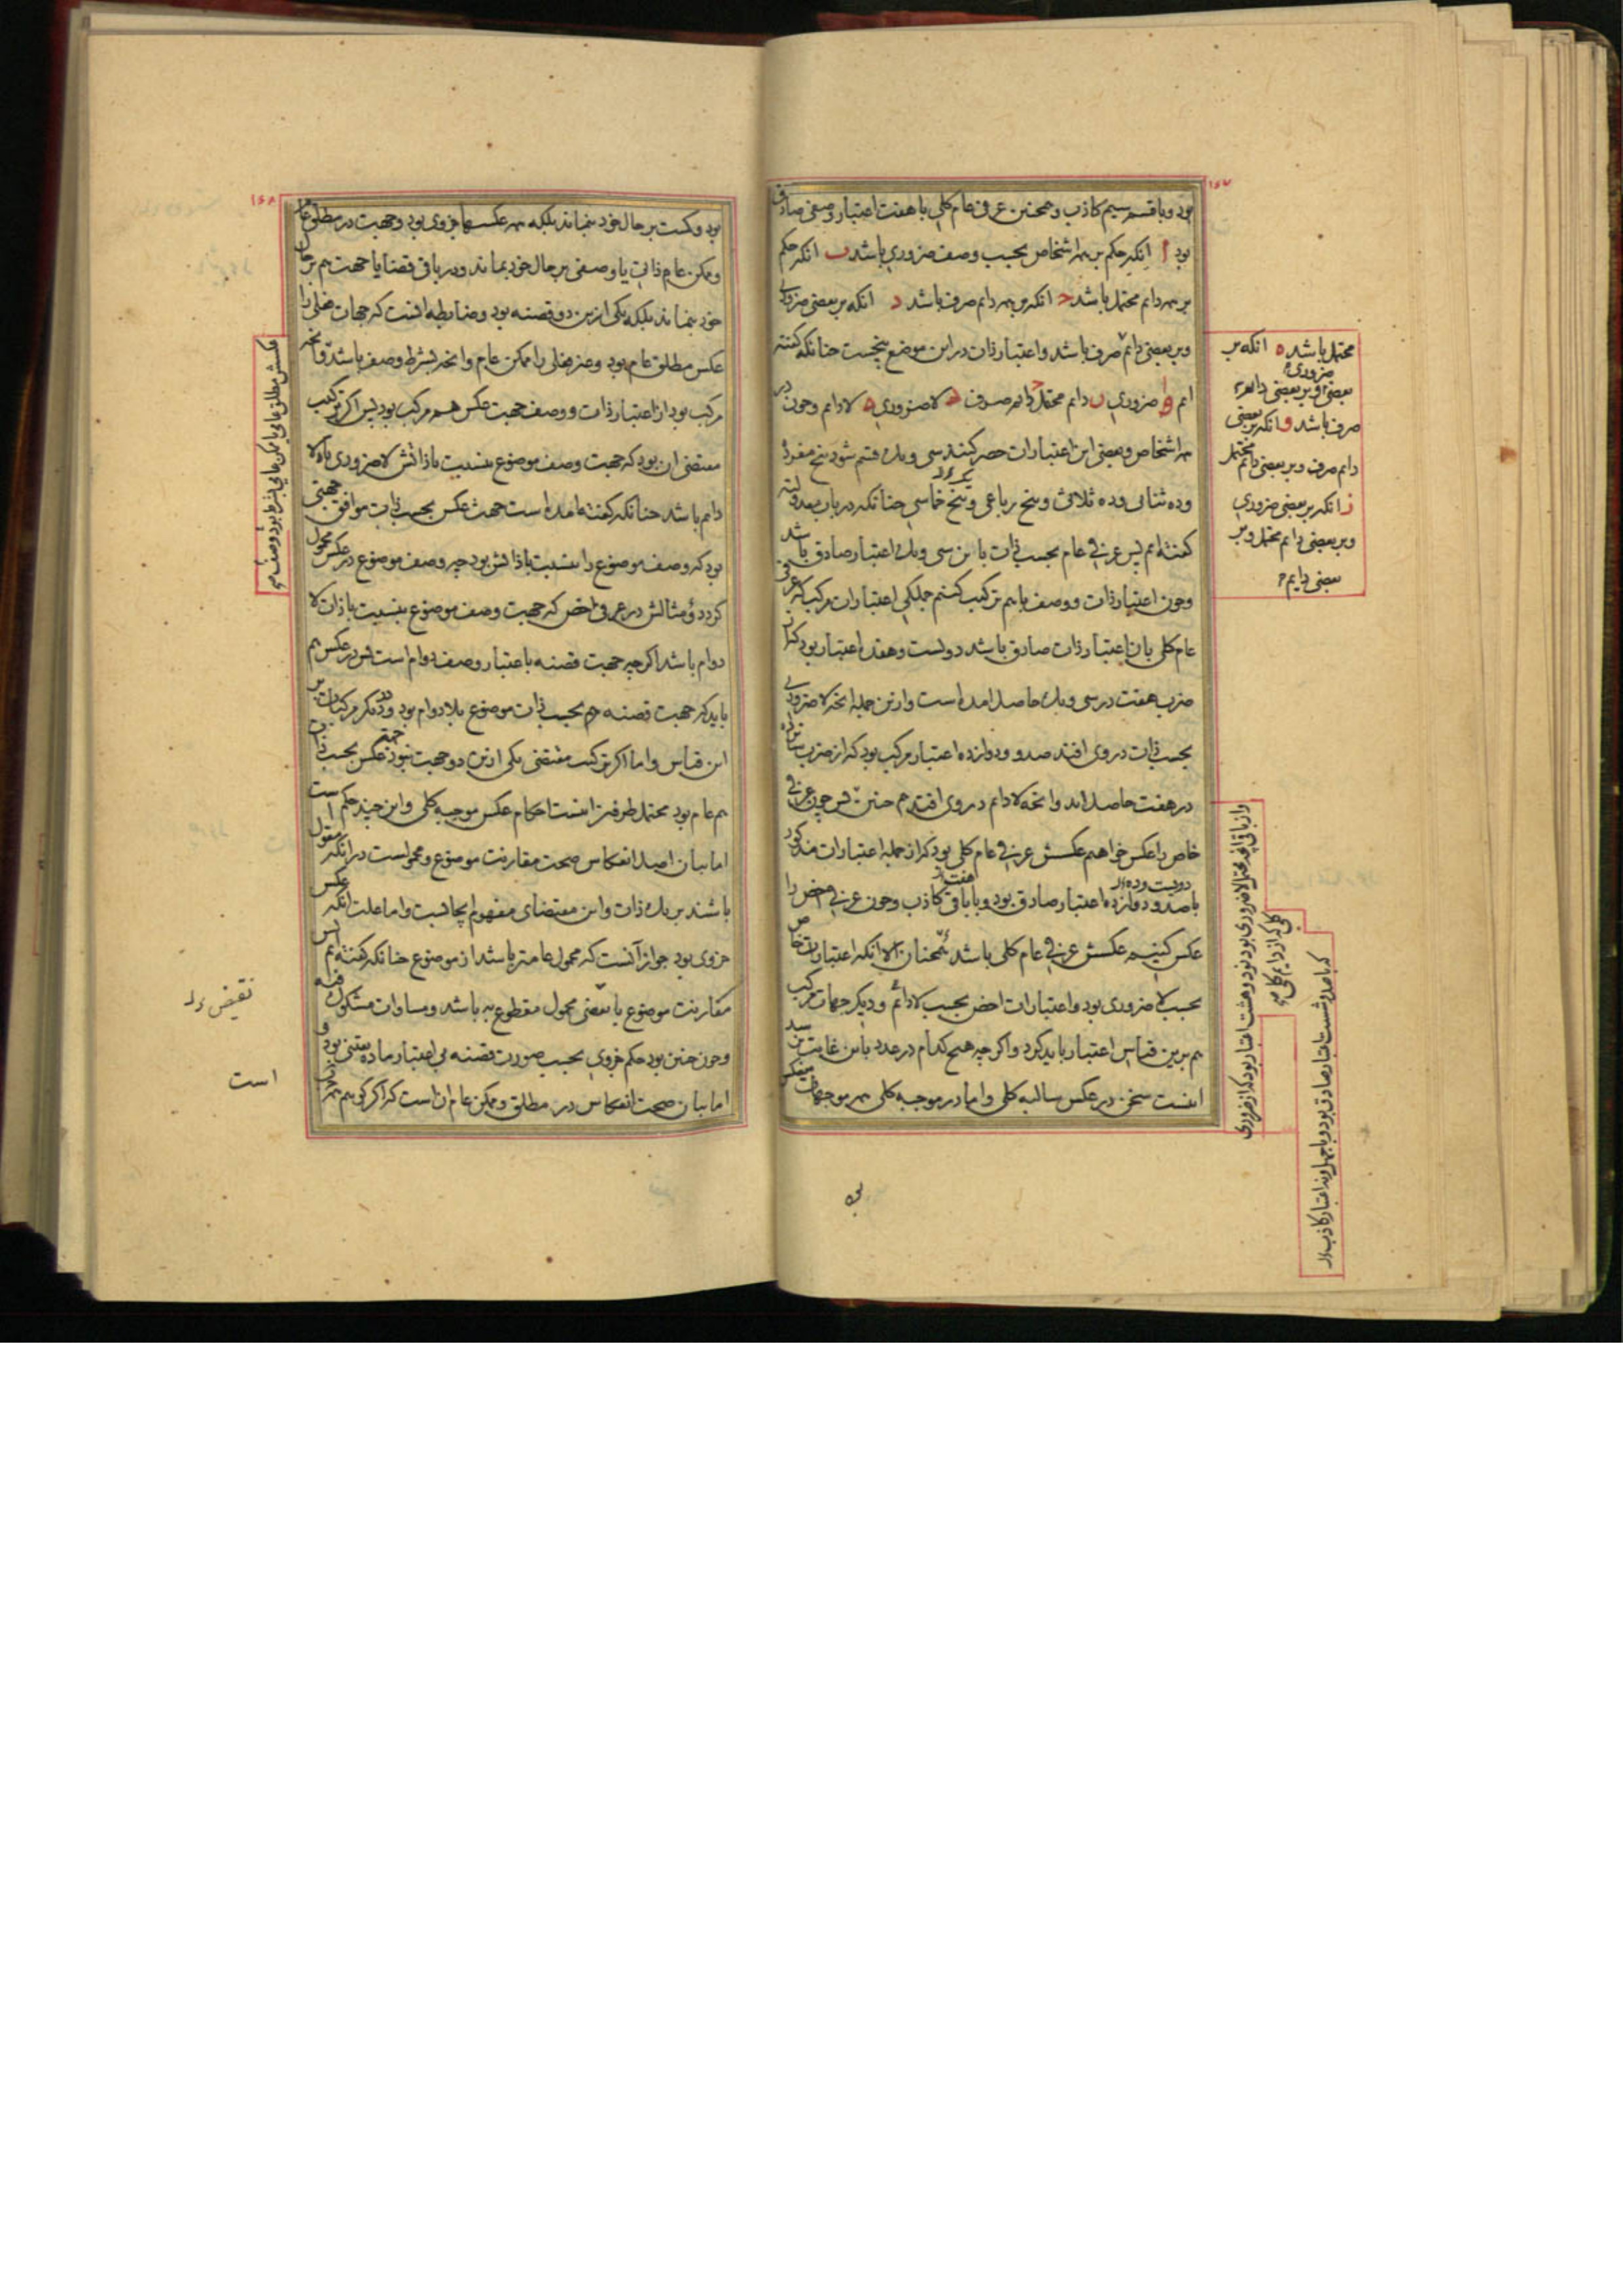 ۱۶۷
بود و با قسم سیم کاذب و همچنین عرفی عام کلی با هفت اعتبار وصفی صادق
بود ا انکه حکم بر همه اشخاص بحسب وصف ضروری باشد ب انکه حکم
بر همه دایم محتمل باشد ح انکه بر همه دایم صرف باشد د انکه بر بعضی ضروری
وبر بعضی دایم صرف باشد واعتبار ذات در این موضع پنجست چنانکه کفته
ایم ا ضروری ب دایم محتمل ح دایم صرف د لا ضروری ه لا دایم وچون در
همه اشخاص و بعضی این اعتبارات حصر کنند سی ویک قسم شود پنج مفرد
وده ثنائی وده ثلاثی و پنج رباعی و پنج خماسی چنانکه در باب معدوله
کفته ایم پس عرفی عام بحسب ذات با این سی ویک اعتبار صادق باشد
وچون اعتبار ذات ووصف با هم ترکیب کنیم جملکی اعتبارات مرکب که عرفی
عام کلی بان اعتبار ذات صادق باشد دویست وهفده اعتبار بود که از
ضرب هفت در سی ویک حاصل امده است وازین جمله انچه لا ضروری
بحسب ذات در وی افتد صد و دوازده اعتبار مرکب بود که از ضرب شانزده
در هفت حاصل اید وانچه لا دایم در وی افتد هم چنین پس چون عرفی
خاص را عکس خواهیم عکسش عرفی عام کلی بود که از جمله اعتبارات مذکور
با صد و دوازده اعتبار صادق بود و با باقی کاذب وچون عرفی اخص را
عکس کنیم عکسش عرفی عام کلی باشد همچنان الا انکه اعتبارات خاص
بحسب لا ضروری بود واعتبارات اخص بحسب لا دایم و دیکر جهات مرکب
هم برین قیاس اعتبار باید کرد واکرچه هیچ کدام در عدد باین غایت نرسد
اینست سخن در عکس سالبه کلی واما در موجبه کلی همه موجهات منعکس
محتمل باشد ه انکه بر
بعضی ضروری وبر بعضی دایم
صرف باشد و انکه بر بعضی
دایم صرف وبر بعضی دایم محتمل
ز انکه بر بعضی ضروری
وبر بعضی دایم محتمل وبر
بعضی دایم
۱۶۸
بود وکمیت بر حال خود نماند بلکه همه عکسها جزوی بود وجهت در مطلق عام
وممکن عام ذاتی یا وصفی بر حال خود بماند ودر باقی قضایا جهت هم بر حال
خود نماند بلکه یکی ازین دو قضیه بود وضابطه انست که جهات فعلی را
عکس مطلق عام بود وغیر فعلی را ممکن عام وانچه بشرط وصف باشد وانچه
مرکب بود از اعتبار ذات ووصف جهت عکس هم مرکب بود پس اکر ترکیب
مقتضی ان بود که جهت وصف موضوع بنسبت با ذاتش لا ضروری یا لا
دایم باشد چنانکه کفته امده است جهت عکس بحسب ذات موافق جهتی
بود که وصف موضوع را بنسبت با ذاتش بود چه وصف موضوع در عکس محمول
کردد ومثالش در عرفی اخص که جهت وصف موضوع بنسبت با ذات لا
دوام باشد اکرچه جهت قضیه باعتبار وصف دوام است پس در عکس هم
باید که جهت قضیه هم بحسب ذات موضوع بلا دوام بود ودر دیکر مرکبات بر
این قیاس واما اکر ترکیب مقتضی یکی ازین دو جهت نبود جهت عکس بحسب ذات
هم عام بود محتمل طرفین اینست احکام عکس موجبه کلی واین چند حکم است
اما بیان اصل انعکاس صحت مقارنت موضوع ومحمولست در انکه مقول
باشند بر یک ذات واین مقتضای مفهوم ایجابست واما علت انکه عکس
جزوی بود جواز آنست که محمول عامتر باشد از موضوع چنانکه کفته ایم پس
مقارنت موضوع با بعضی محمول مقطوع به باشد ومساوات مشکوک فیه
وچون چنین بود حکم جزوی بحسب صورت قضیه بی اعتبار ماده یقینی بود و
اما بیان صحت انعکاس در مطلق وممکن عام ان است که اکر کوئیم همه
نقیض
است